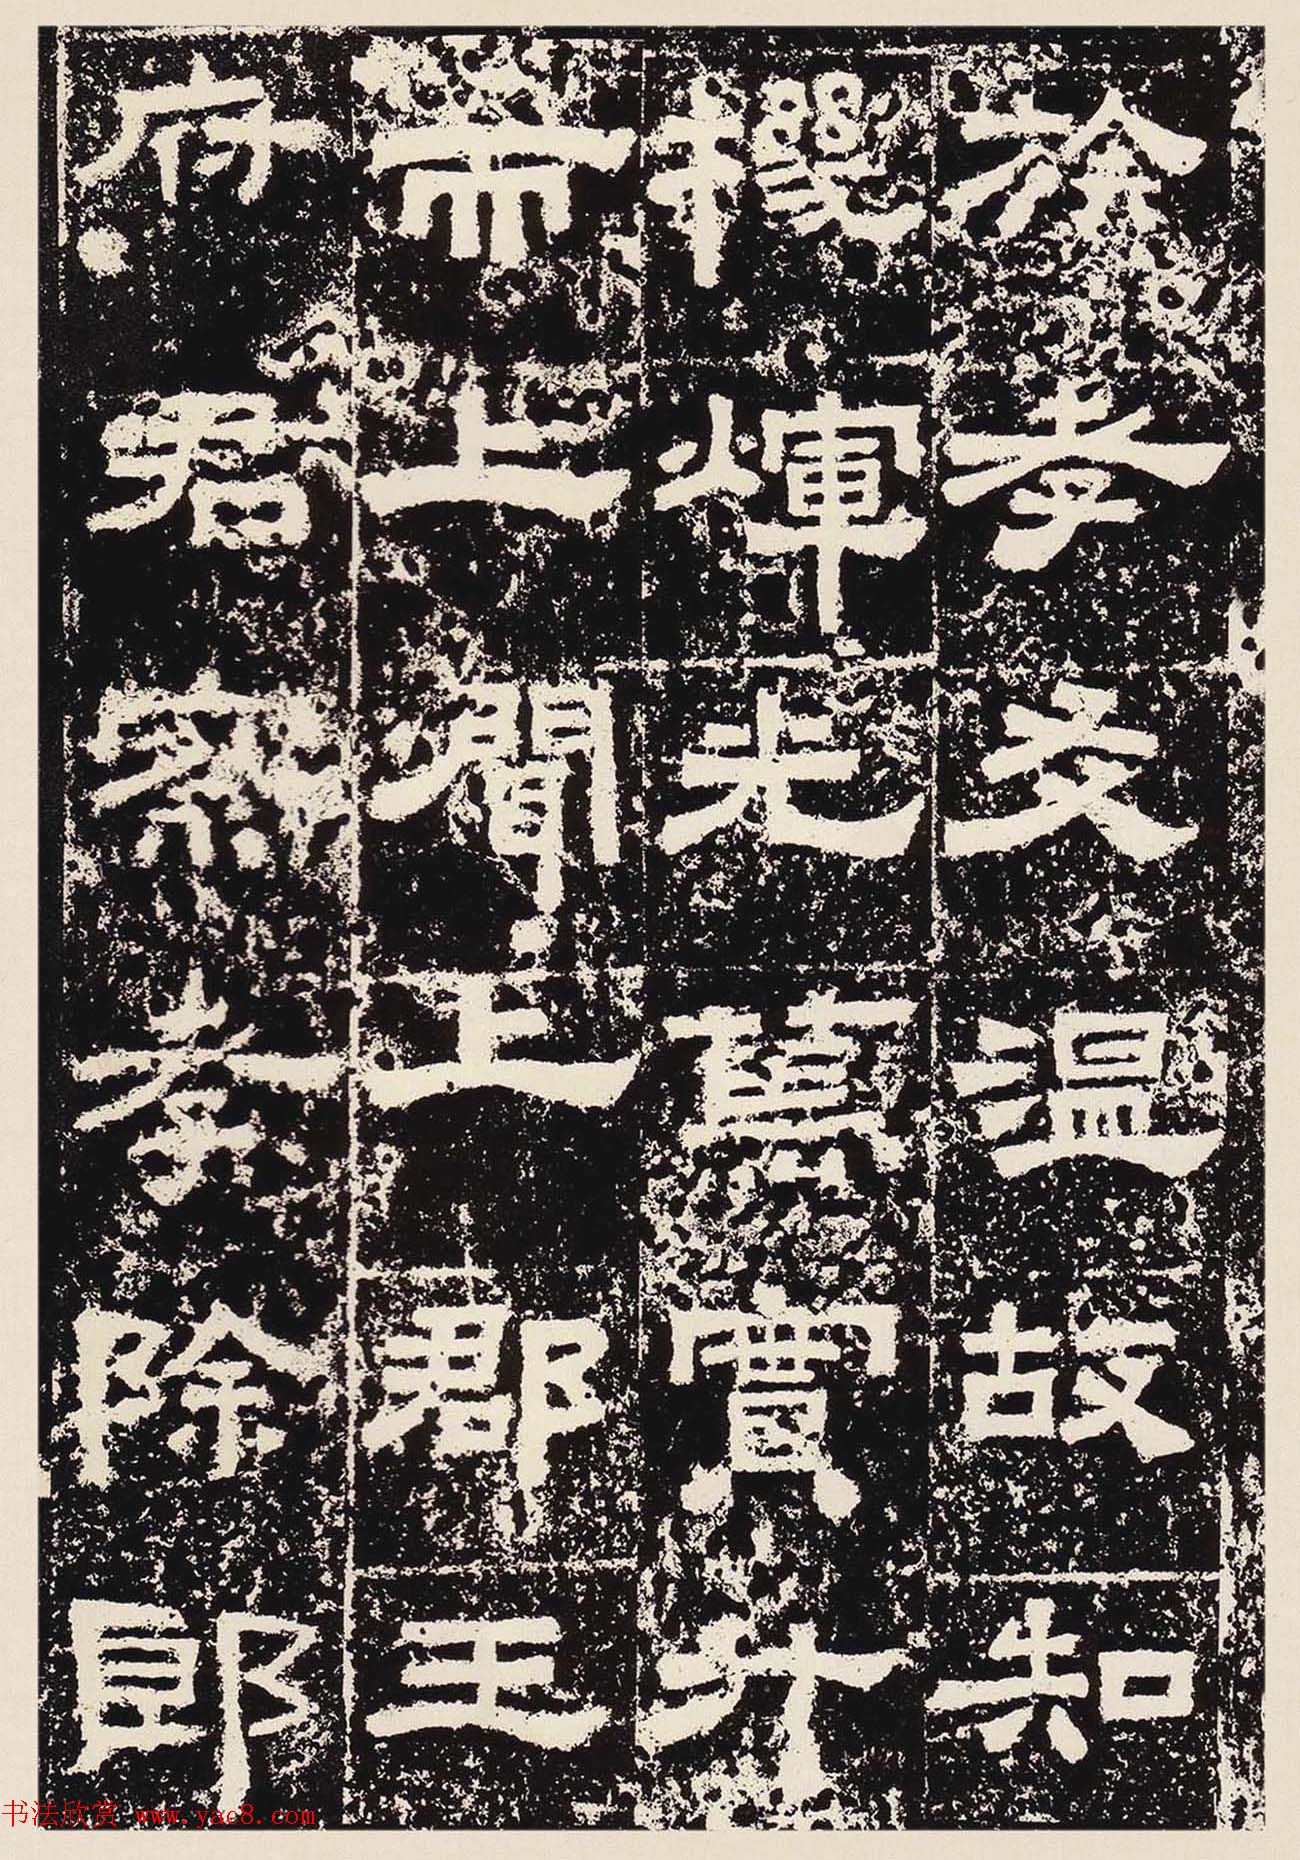 族孝友温故知
機煇光篤實升
而上聞上郡王
府君察孝除郎
书法欣赏 www.yac8.com